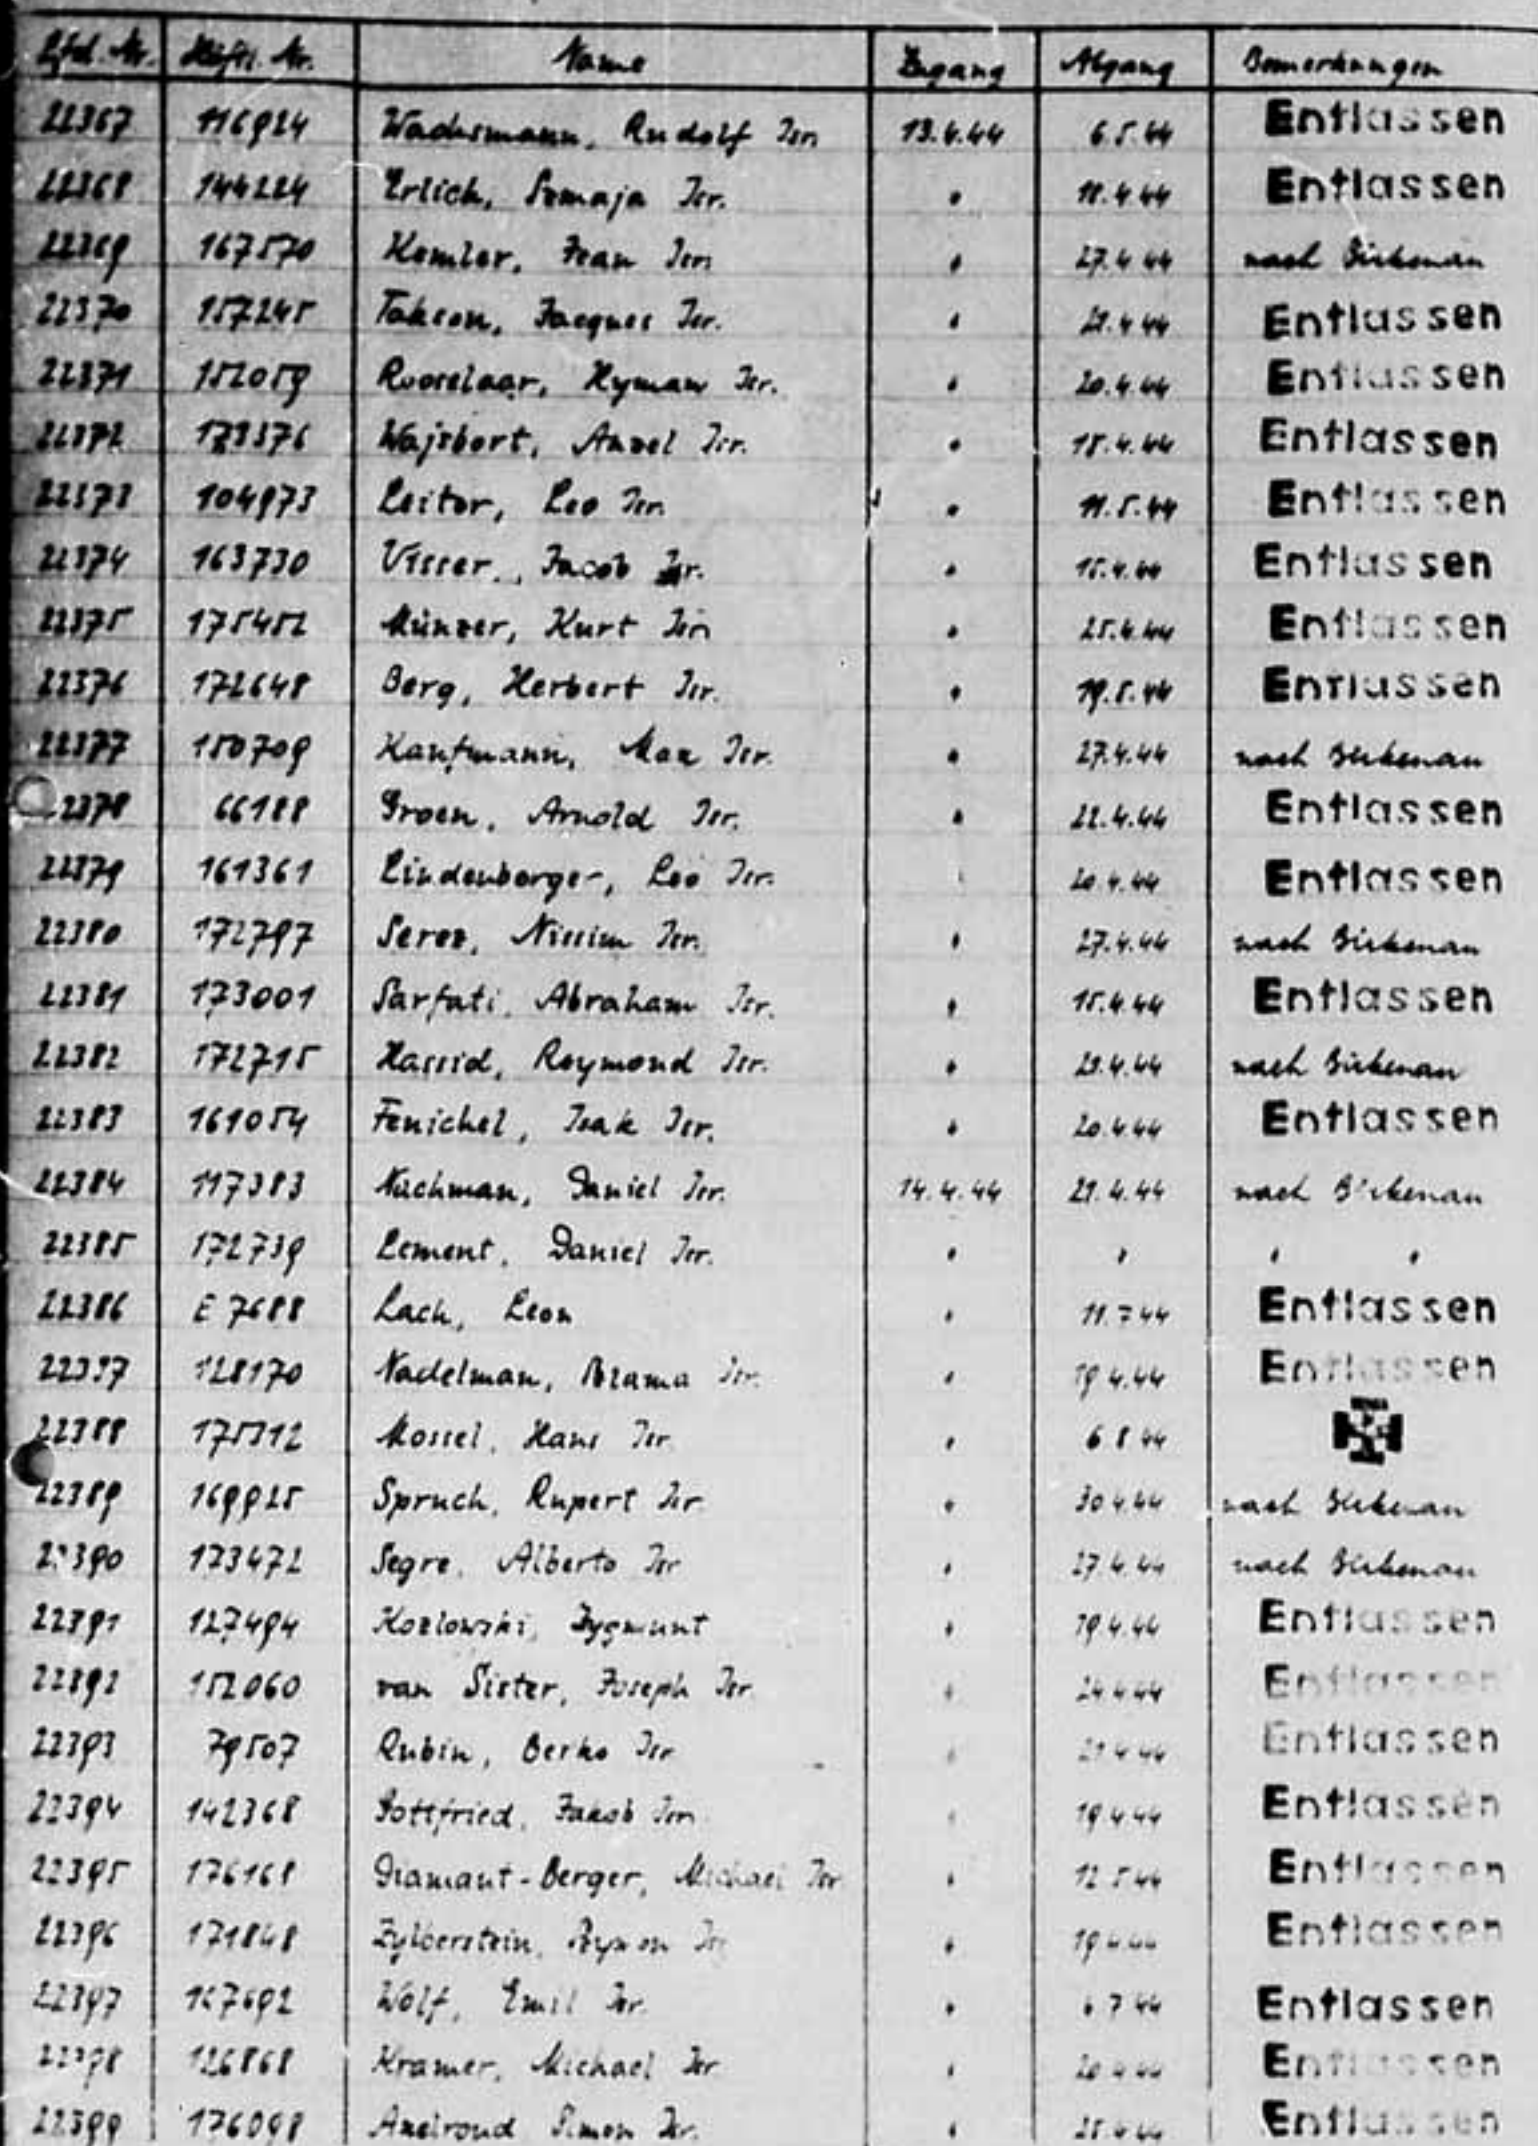 Lfd. Nr. Häftl. Nr. Name Zugang Abgang Bemerkungen
22367 116924 Wachsmann, Rudolf Isr. 13.4.44 6.5.44 Entlassen
22368 144224 Erlich, Szmaja Isr. " 18.4.44 Entlassen
22369 167570 Kemler, Jean Isr. " 27.4.44 nach Birkenau
22370 157245 Jacques Isr. " 21.4.44 Entlassen
22371 152059 Rooselaar, Hyman Isr. " 20.4.44 Entlassen
22372 Wajsbort, Anzel Isr. " 18.4.44 Entlassen
22373 104973 Leitor, Leo Isr. " 11.5.44 Entlassen
22374 163730 Visser, Jacob Isr. " 15.4.44 Entlassen
22375 175452 Münzer, Kurt Isr. " 25.4.44 Entlassen
22376 172648 Berg, Herbert Isr. " 19.5.44 Entlassen
22377 150709 Kaufmann, Max Isr. " 27.4.44 nach Birkenau
22378 66188 Groen, Arnold Isr. " 22.4.44 Entlassen
22379 161361 Lindenberger, Leo Isr. 20.4.44 Entlassen
22380 172797 Serez, Nissim Isr. " 27.4.44 nach Birkenau
22381 173001 Sarfati, Abraham Isr. " 15.4.44 Entlassen
22382 172715 Hassid, Raymond Isr. " 23.4.44 nach Birkenau
22383 161054 Fenichel, Isak Isr. " 20.4.44 Entlassen
22384 117383 Nachman, Daniel Isr. 14.4.44 21.4.44 nach Birkenau
22385 172739 Lement, Daniel Isr. " " " "
22386 E 7688 Lach, Leon " 11.7.44 Entlassen
22387 128170 Nadelman, Abrama Isr. " 19.4.44 Entlassen
22388 175312 Mossel, Hans Isr. " 6.8.44
22389 169925 Spruch, Rupert Isr. " 30.4.44 nach Birkenau
22390 173472 Segre, Alberto Isr. " 27.4.44 nach Birkenau
22391 127494 Kozlowski, Zygmunt " 19.4.44 Entlassen
22392 152060 van Sister, Joseph Isr. " 24.4.44 Entlassen
22393 79507 Rubin, Berko Isr. " 21.4.44 Entlassen
22394 142368 Gottfried, Jakob Isr. " 19.4.44 Entlassen
22395 176168 Diamant-Berger, Michael Isr. " 12.5.44 Entlassen
22396 171848 Zylberstein, Isr. " 19.4.44 Entlassen
22397 167692 Wolf, Emil Isr. " 6.7.44 Entlassen
22398 126868 Kramer, Michael Isr. " 20.4.44 Entlassen
22399 176098 Axelroud Simon Isr. " 25.4.44 Entlassen